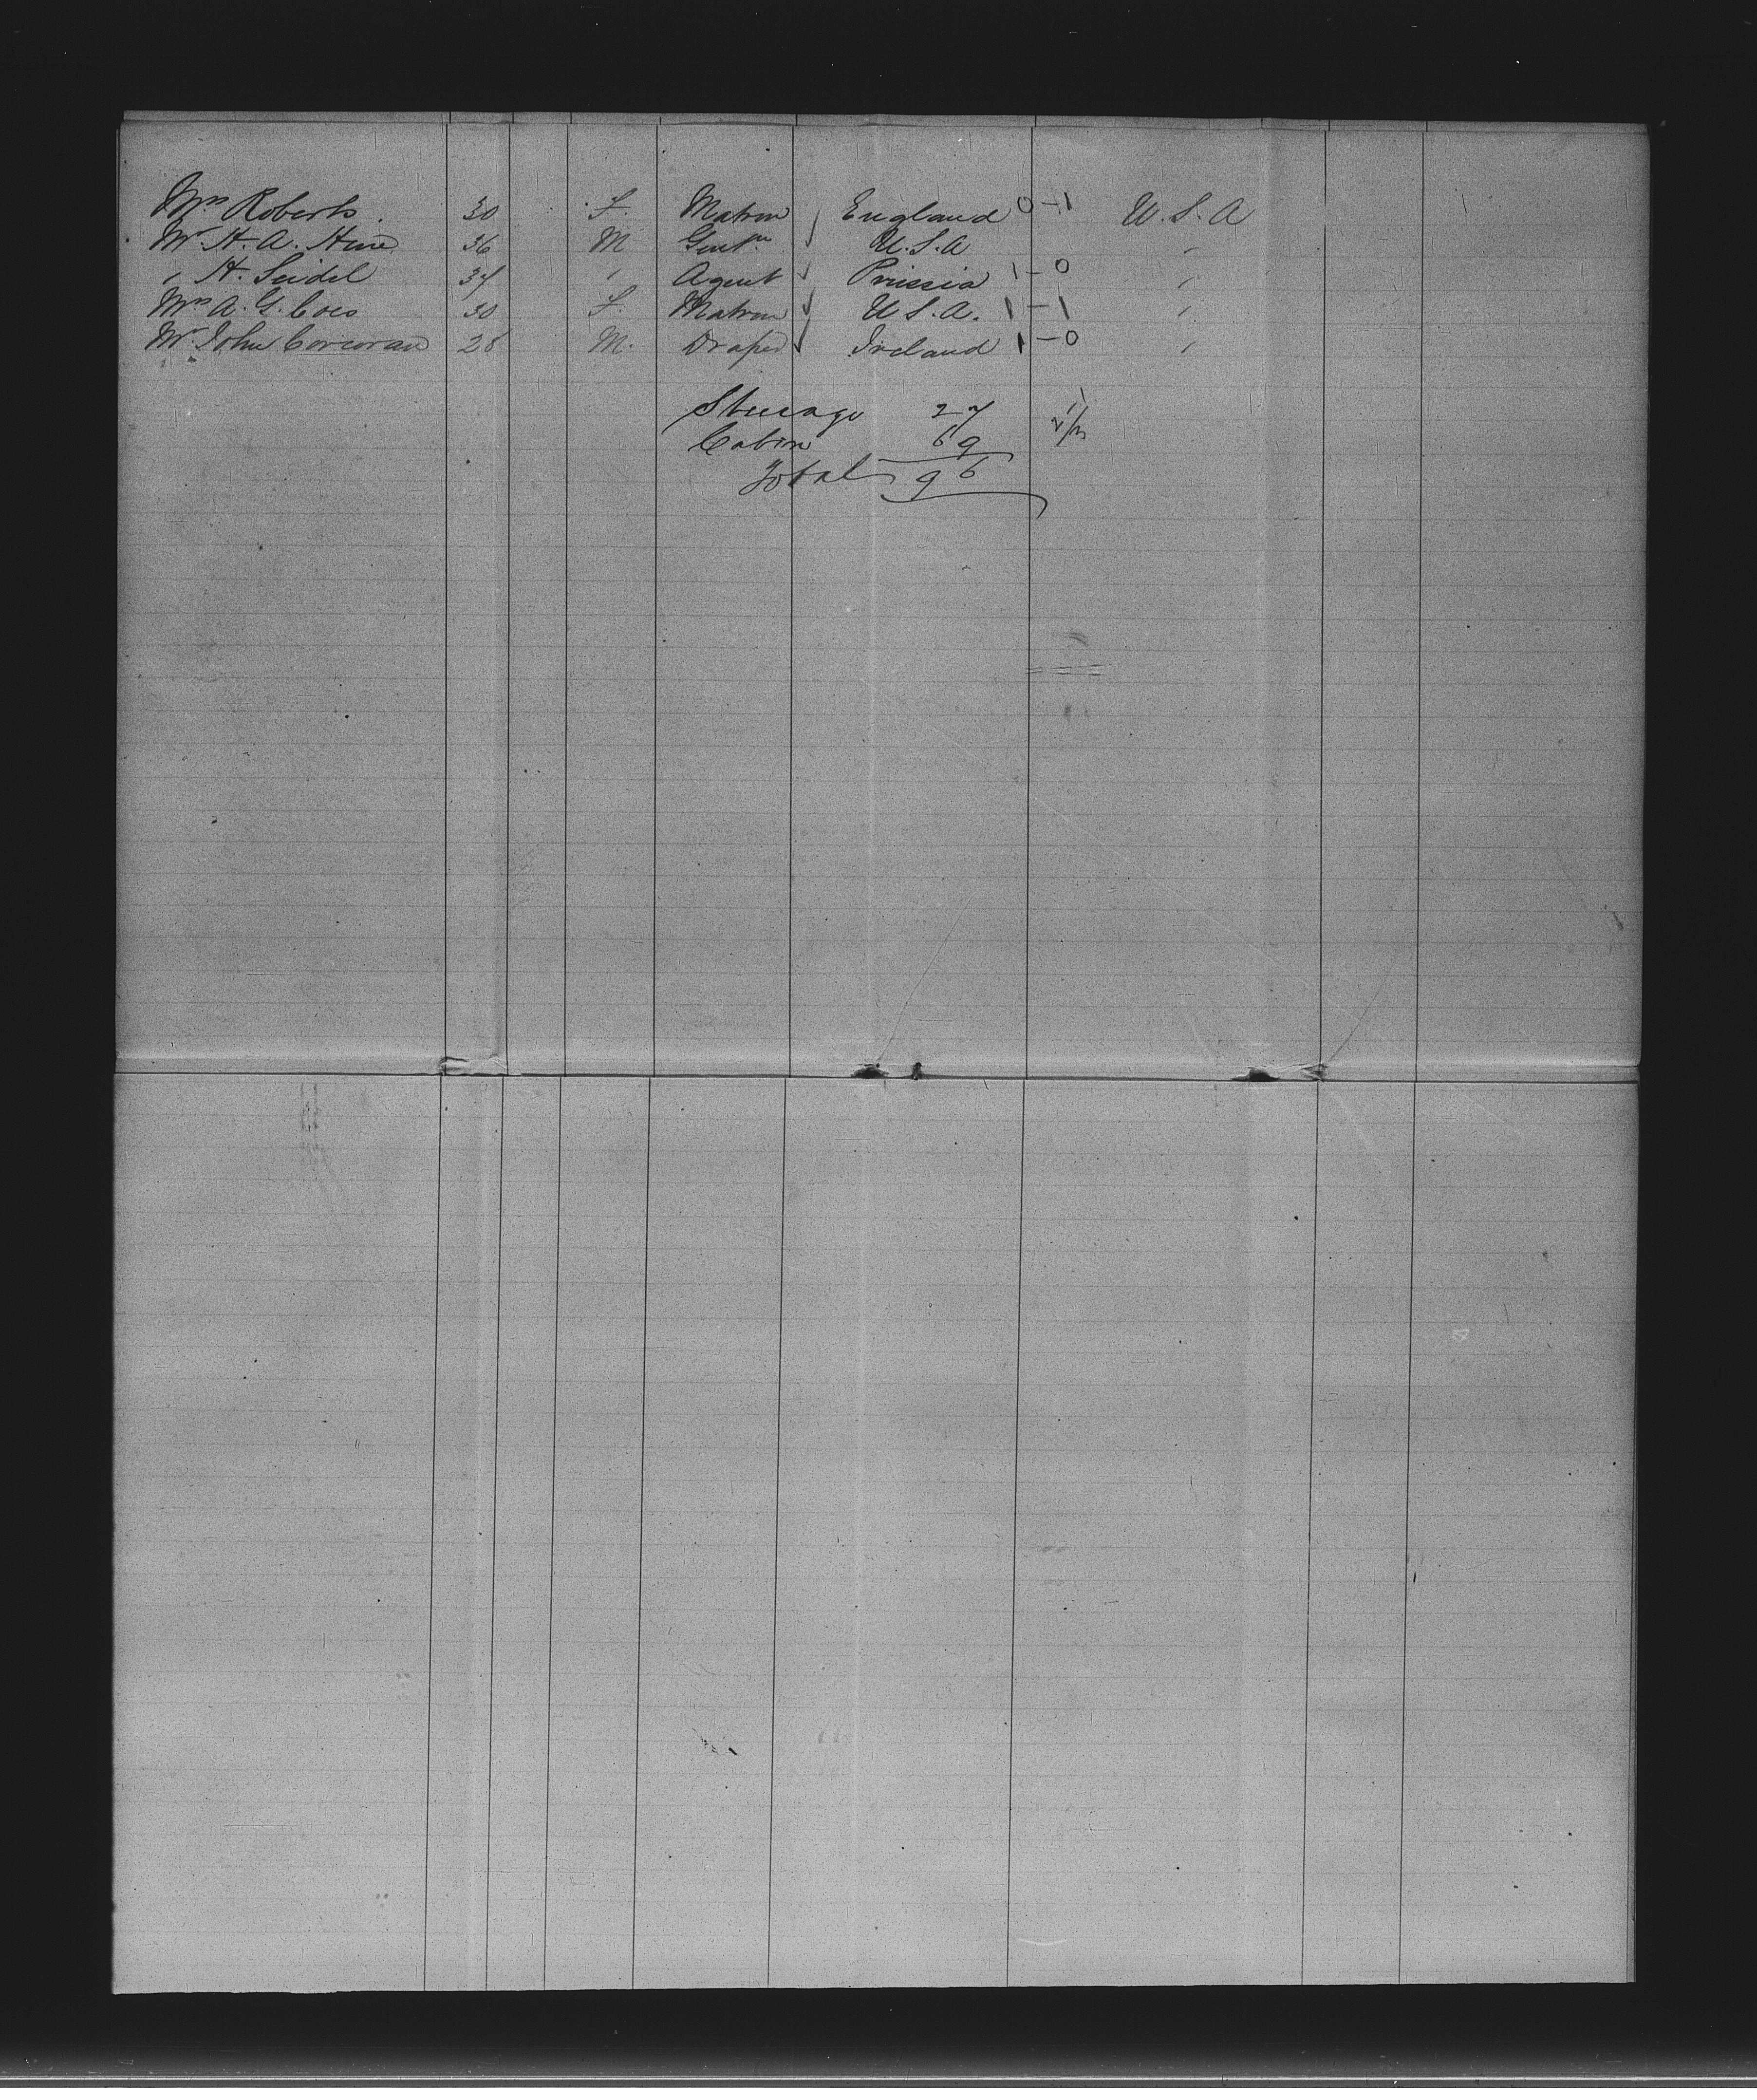 Mrs Roberts . 30 F. Matron England 0-1 U.S.A
Mr H. A. 36 M Gentn U.S.A "
" H. Seidel 37 " Agent Prussia 1-0 "
Mrs A. G. Coes 30 F. Matron U.S.A. 1-1 "
Mr John Corcoran 28 M. Draper Ireland 1-0 "
Steerage 27
Cabin 69
Total 96